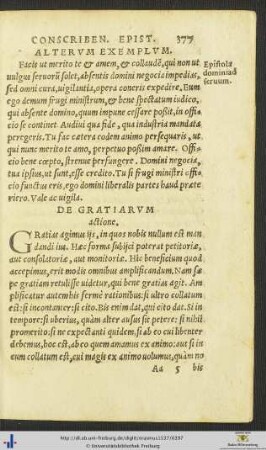 CONSCRIBEN. EPIST. 377
ALTERVM EXEMPLVM.
Facis ut merito te & amem, & collaudē, qui non ut
uulgus seruorū solet, absentis domini negocia impedias,
sed omni cura, uigilantia, opera coneris expedire. Eum
ego demum frugi ministrum, & bene spectatum iudico,
qui absente domino, quum impune cessare possit, in offi-
cio se continet. Audiui qua fide, qua industria mandata
peregeris. Tu fac cætera eodem animo persequaris, ut,
qui nunc merito te amo, perpetuo possim amare. Offi-
cio bene cœpto, strenue perfungere. Domini negocia,
tua ipsius, ut sunt, esse credito. Tu si frugi ministri offi-
cio functus eris, ego domini liberalis partes haud præte
riero. Vale ac uigila.
Epistola
domini ad
seruum.
DE GRATIARVM
actione.
GRatias agimus ijs, in quos nobis nullum est man
dandi ius. Hæc forma subijci poterat petitoriæ,
aut consolatoriæ, aut monitoriæ. Hic beneficium quod
accepimus, erit modis omnibus amplificandum. Nam sæ
pe gratiam retulisse uidetur, qui bene gratias agit. Am
plificatur autem his ferme rationibus: si ultro collatum
est: si incontanter: si cito. Bis enim dat, qui cito dat. Si in
tempore: si uberius, quàm alter ausus sit petere: si nihil
promerito: si ne expectanti quidem. si ab eo cui libenter
debemus, hoc est, ab eo quem amamus ex animo: aut si in
eum collatum est, cui magis ex animo uolumus, quàm no
Aa 5 bis
http://dl.ub.uni-freiburg.de/diglit/erasmus1537/0397
© Universitätsbibliothek Freiburg